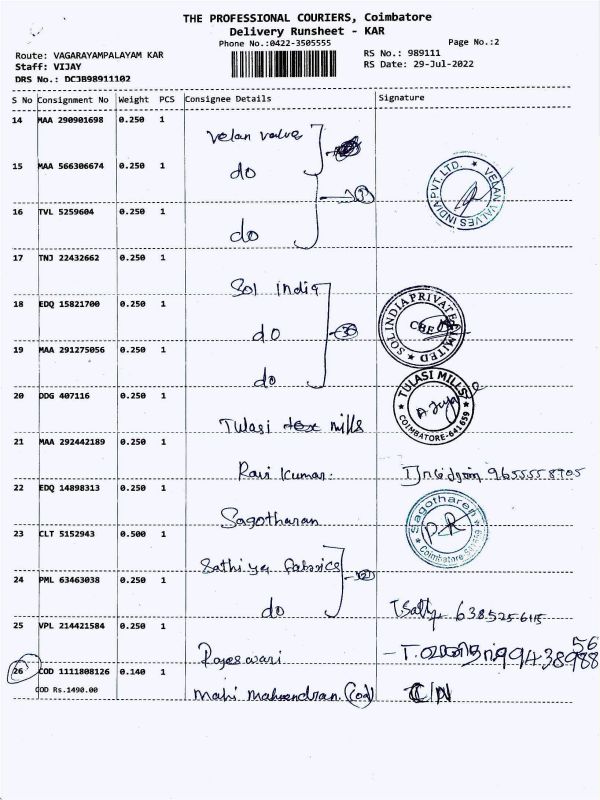 THE PROFESSIONAL COURIERS, Coimbatore
Delivery Runsheet - KAR
Phone No.:0422-3505555
Page No.:2
Route: VAGARAYAMPALAYAM KAR
RS No.: 989111
Staff: VIJAY
RS Date: 29-Jul-2022
DRS No.: DCJB98911102
S No Consignment No Weight PCS Consignee Details Signature
14 MAA 290901698 0.250 1
Velan valve
15 MAA 566306674 0.250 1
do
VELAN VALVES INDIA PVT. LTD.
16 TVL 5259604 0.250 1
do
17 TNJ 22432662 0.250 1
Sol india
18 EDQ 15821700 0.250 1
do
SOL INDIA PRIVATE LIMITED
CBE
19 MAA 291275056 0.250 1
do
20 DDG 407116 0.250 1
Tulasi mills
TULASI MILLS
COIMBATORE-641659
21 MAA 292442189 0.250 1
Ravi Kumar.
22 EDQ 14898313 0.250 1
Sagotharan
Sagotharan
Coimbatore
23 CLT 5152943 0.500 1
Sathiya fabrics
24 PML 63463038 0.250 1
do
25 VPL 214421584 0.250 1
Rajeswari
26 COD 1111808126 0.140 1
COD Rs.1490.00
Mahi Mahendran (cod)